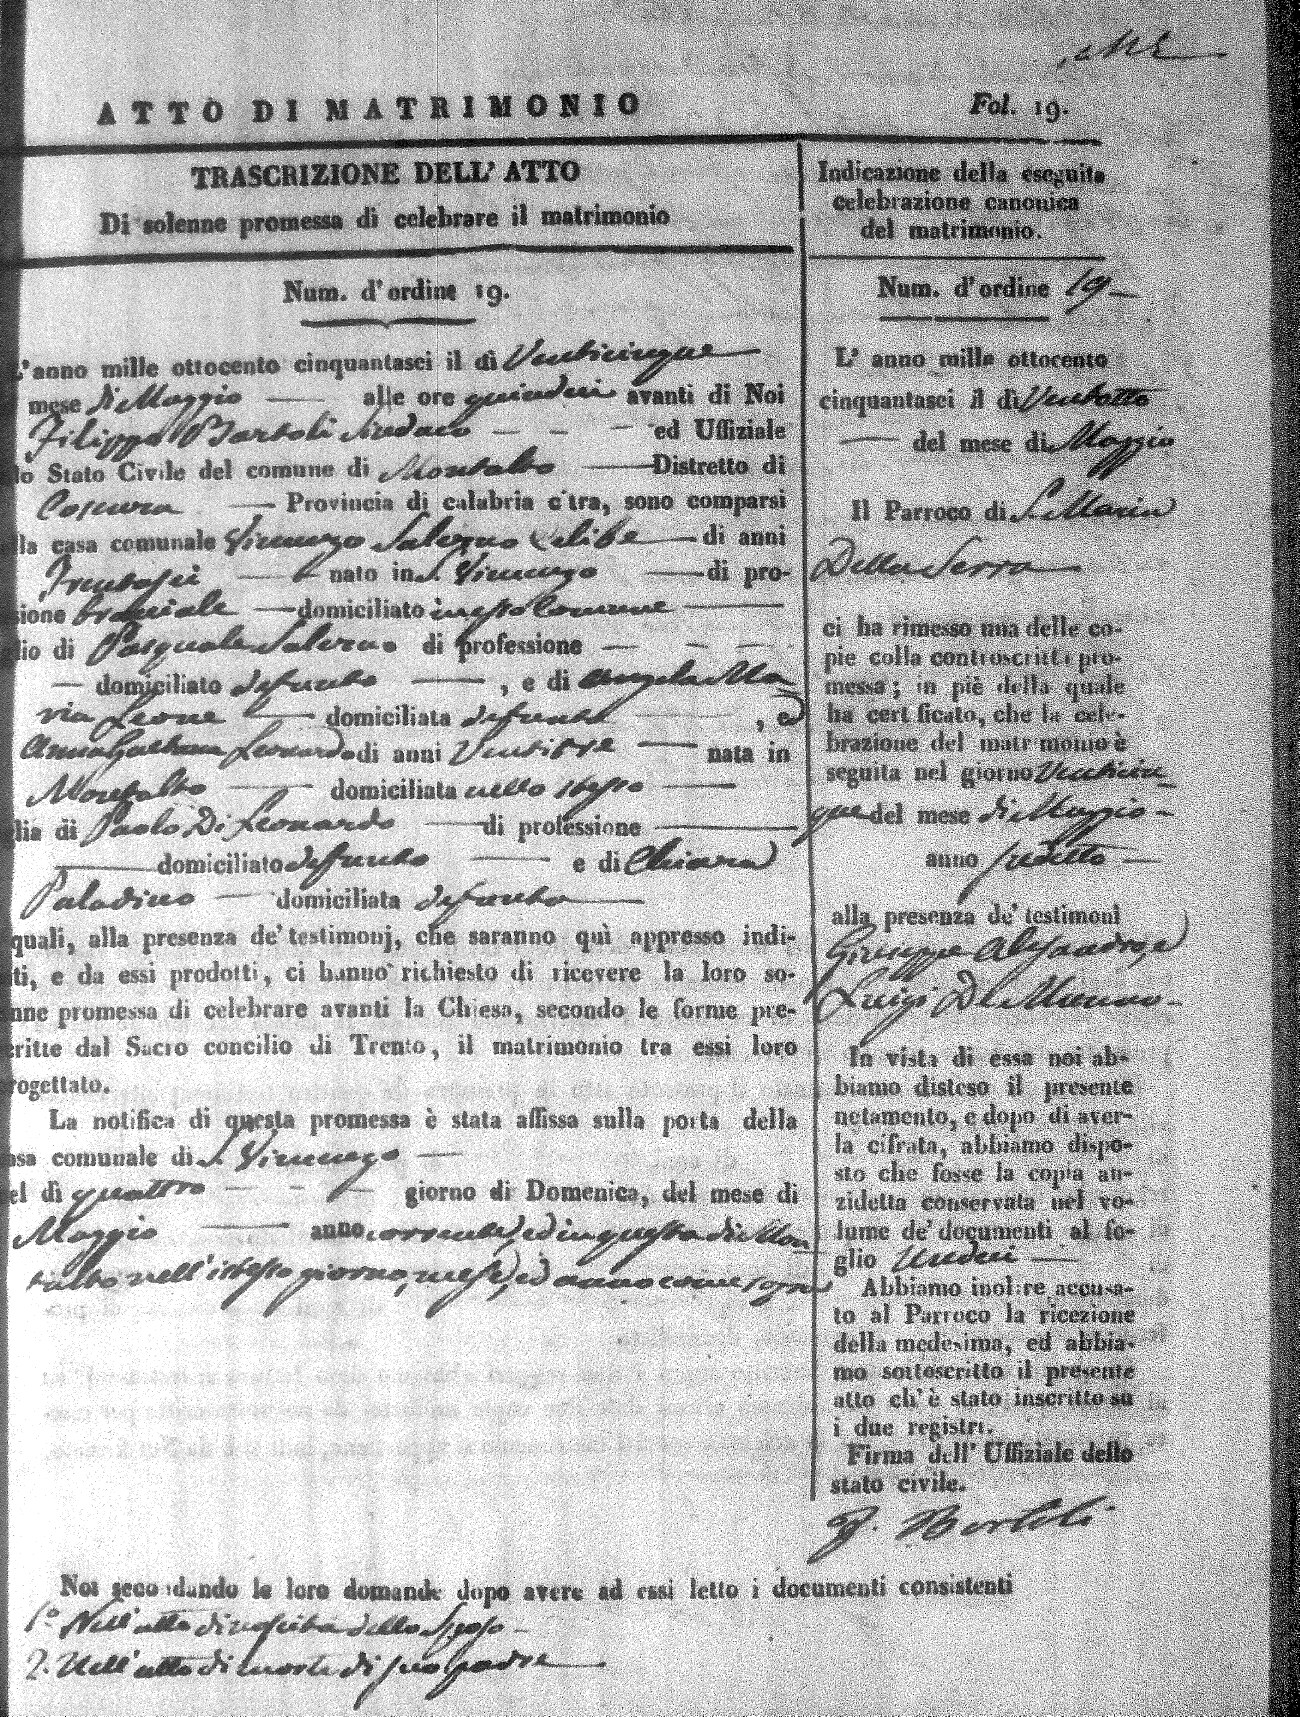 ATTO DI MATRIMONIO
Fol. 19.
TRASCRIZIONE DELL' ATTO
Di solenne promessa di celebrare il matrimonio
Num. d'ordine 19.
L'anno mille ottocento cinquantasei il dì Venticinque
mese di Maggio — alle ore quindici avanti di Noi
Filippo Bartoli Sindaco — — — ed Uffiziale
lo Stato Civile del comune di Montalto — Distretto di
Cosenza — Provincia di calabria citra, sono comparsi
lla casa comunale Vincenzo Salerno Celibe — di anni
Trentasei — nato in S. Vincenzo — di pro-
sione bracciale — domiciliato in esso Comune —
lio di Pasquale Salerno di professione — — —
— domiciliato defunto — , e di Angela Ma
ria Leone — domiciliata defunta — , ed
Anna Leonardo di anni Ventitre — nata in
Montalto — domiciliata nello stesso —
lia di Paolo Di Leonardo — di professione —
— domiciliato defunto — e di Chiara
Paladino — domiciliata defunta —
quali, alla presenza de' testimonj, che saranno quì appresso indi-
ti, e da essi prodotti, ci hanno richiesto di ricevere la loro so-
nne promessa di celebrare avanti la Chiesa, secondo le forme pre-
critte dal Sacro concilio di Trento, il matrimonio tra essi loro
rogettato.
La notifica di questa promessa è stata affissa sulla porta della
asa comunale di S. Vincenzo —
el dì quattro — — — giorno di Domenica, del mese di
Maggio — anno corrente, ed in questa di Mon
talto nell'istesso giorno, mese, ed anno come sopra
Indicazione della eseguita
celebrazione canonica
del matrimonio.
Num. d'ordine 19 —
L' anno mille ottocento
cinquantasei il dì Ventotto
— del mese di Maggio
Il Parroco di S. Maria
Della Serra —
ci ha rimesso una delle co-
pie colla controscritta pro-
messa; in piè della quale
ha certificato, che la cele-
brazione del matrimonio è
seguita nel giorno Venticin
que del mese di Maggio —
anno sudetto —
alla presenza de' testimoni
Giuseppe Alessandro, e
Luigi De Marco —
In vista di essa noi ab-
biamo disteso il presente
notamento, e dopo di aver-
la cifrata, abbiamo dispo-
sto che fosse la copia an-
zidetta conservata nel vo-
lume de' documenti al fo-
glio Undici —
Abbiamo inoltre accusa-
to al Parroco la ricezione
della medesima, ed abbia-
mo sottoscritto il presente
atto ch' è stato inscritto su
i due registri.
Firma dell' Uffiziale dello
stato civile.
F. Bartoli
Noi secondando le loro domande dopo avere ad essi letto i documenti consistenti
1.° Nell'atto di nascita dello Sposo —
2. Nell'atto di morte di suo padre —